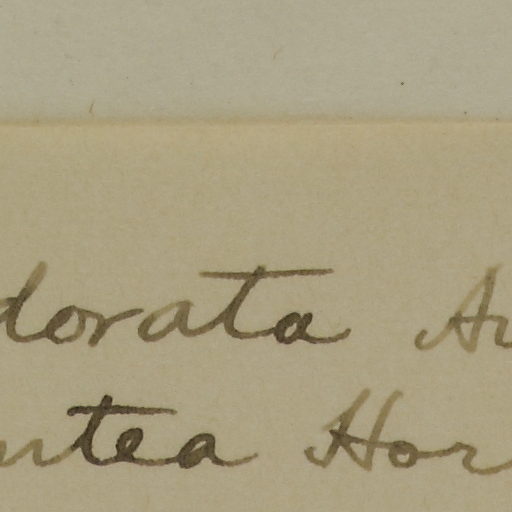 dorata A
ntea Hor